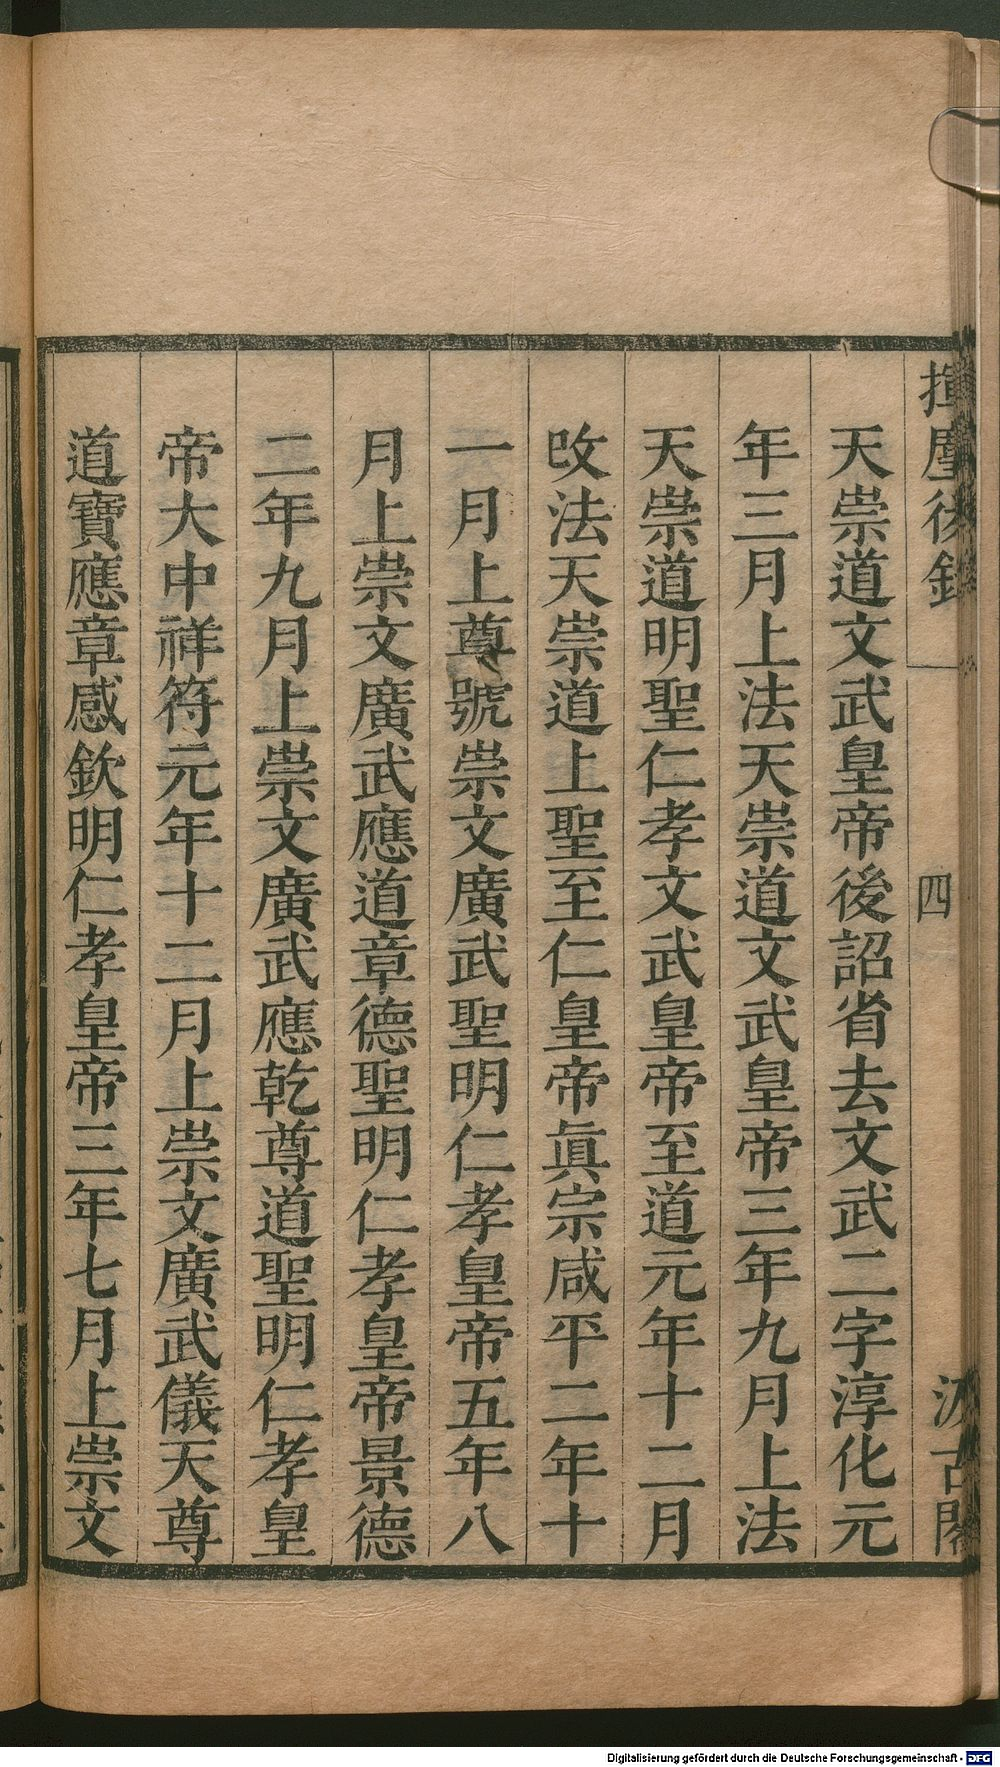 揮麈後錄
四
汲古閣
天崇道文武皇帝後詔省去文武二字淳化元
年三月上法天崇道文武皇帝三年九月上法
天崇道明聖仁孝文武皇帝至道元年十二月
改法天崇道上聖至仁皇帝眞宗咸平二年十
一月上尊號崇文廣武聖明仁孝皇帝五年八
月上崇文廣武應道章德聖明仁孝皇帝景德
二年九月上崇文廣武應乾尊道聖明仁孝皇
帝大中祥符元年十二月上崇文廣武儀天尊
道寶應章感欽明仁孝皇帝三年七月上崇文
Digitalisierung gefördert durch die Deutsche Forschungsgemeinschaft - DFG